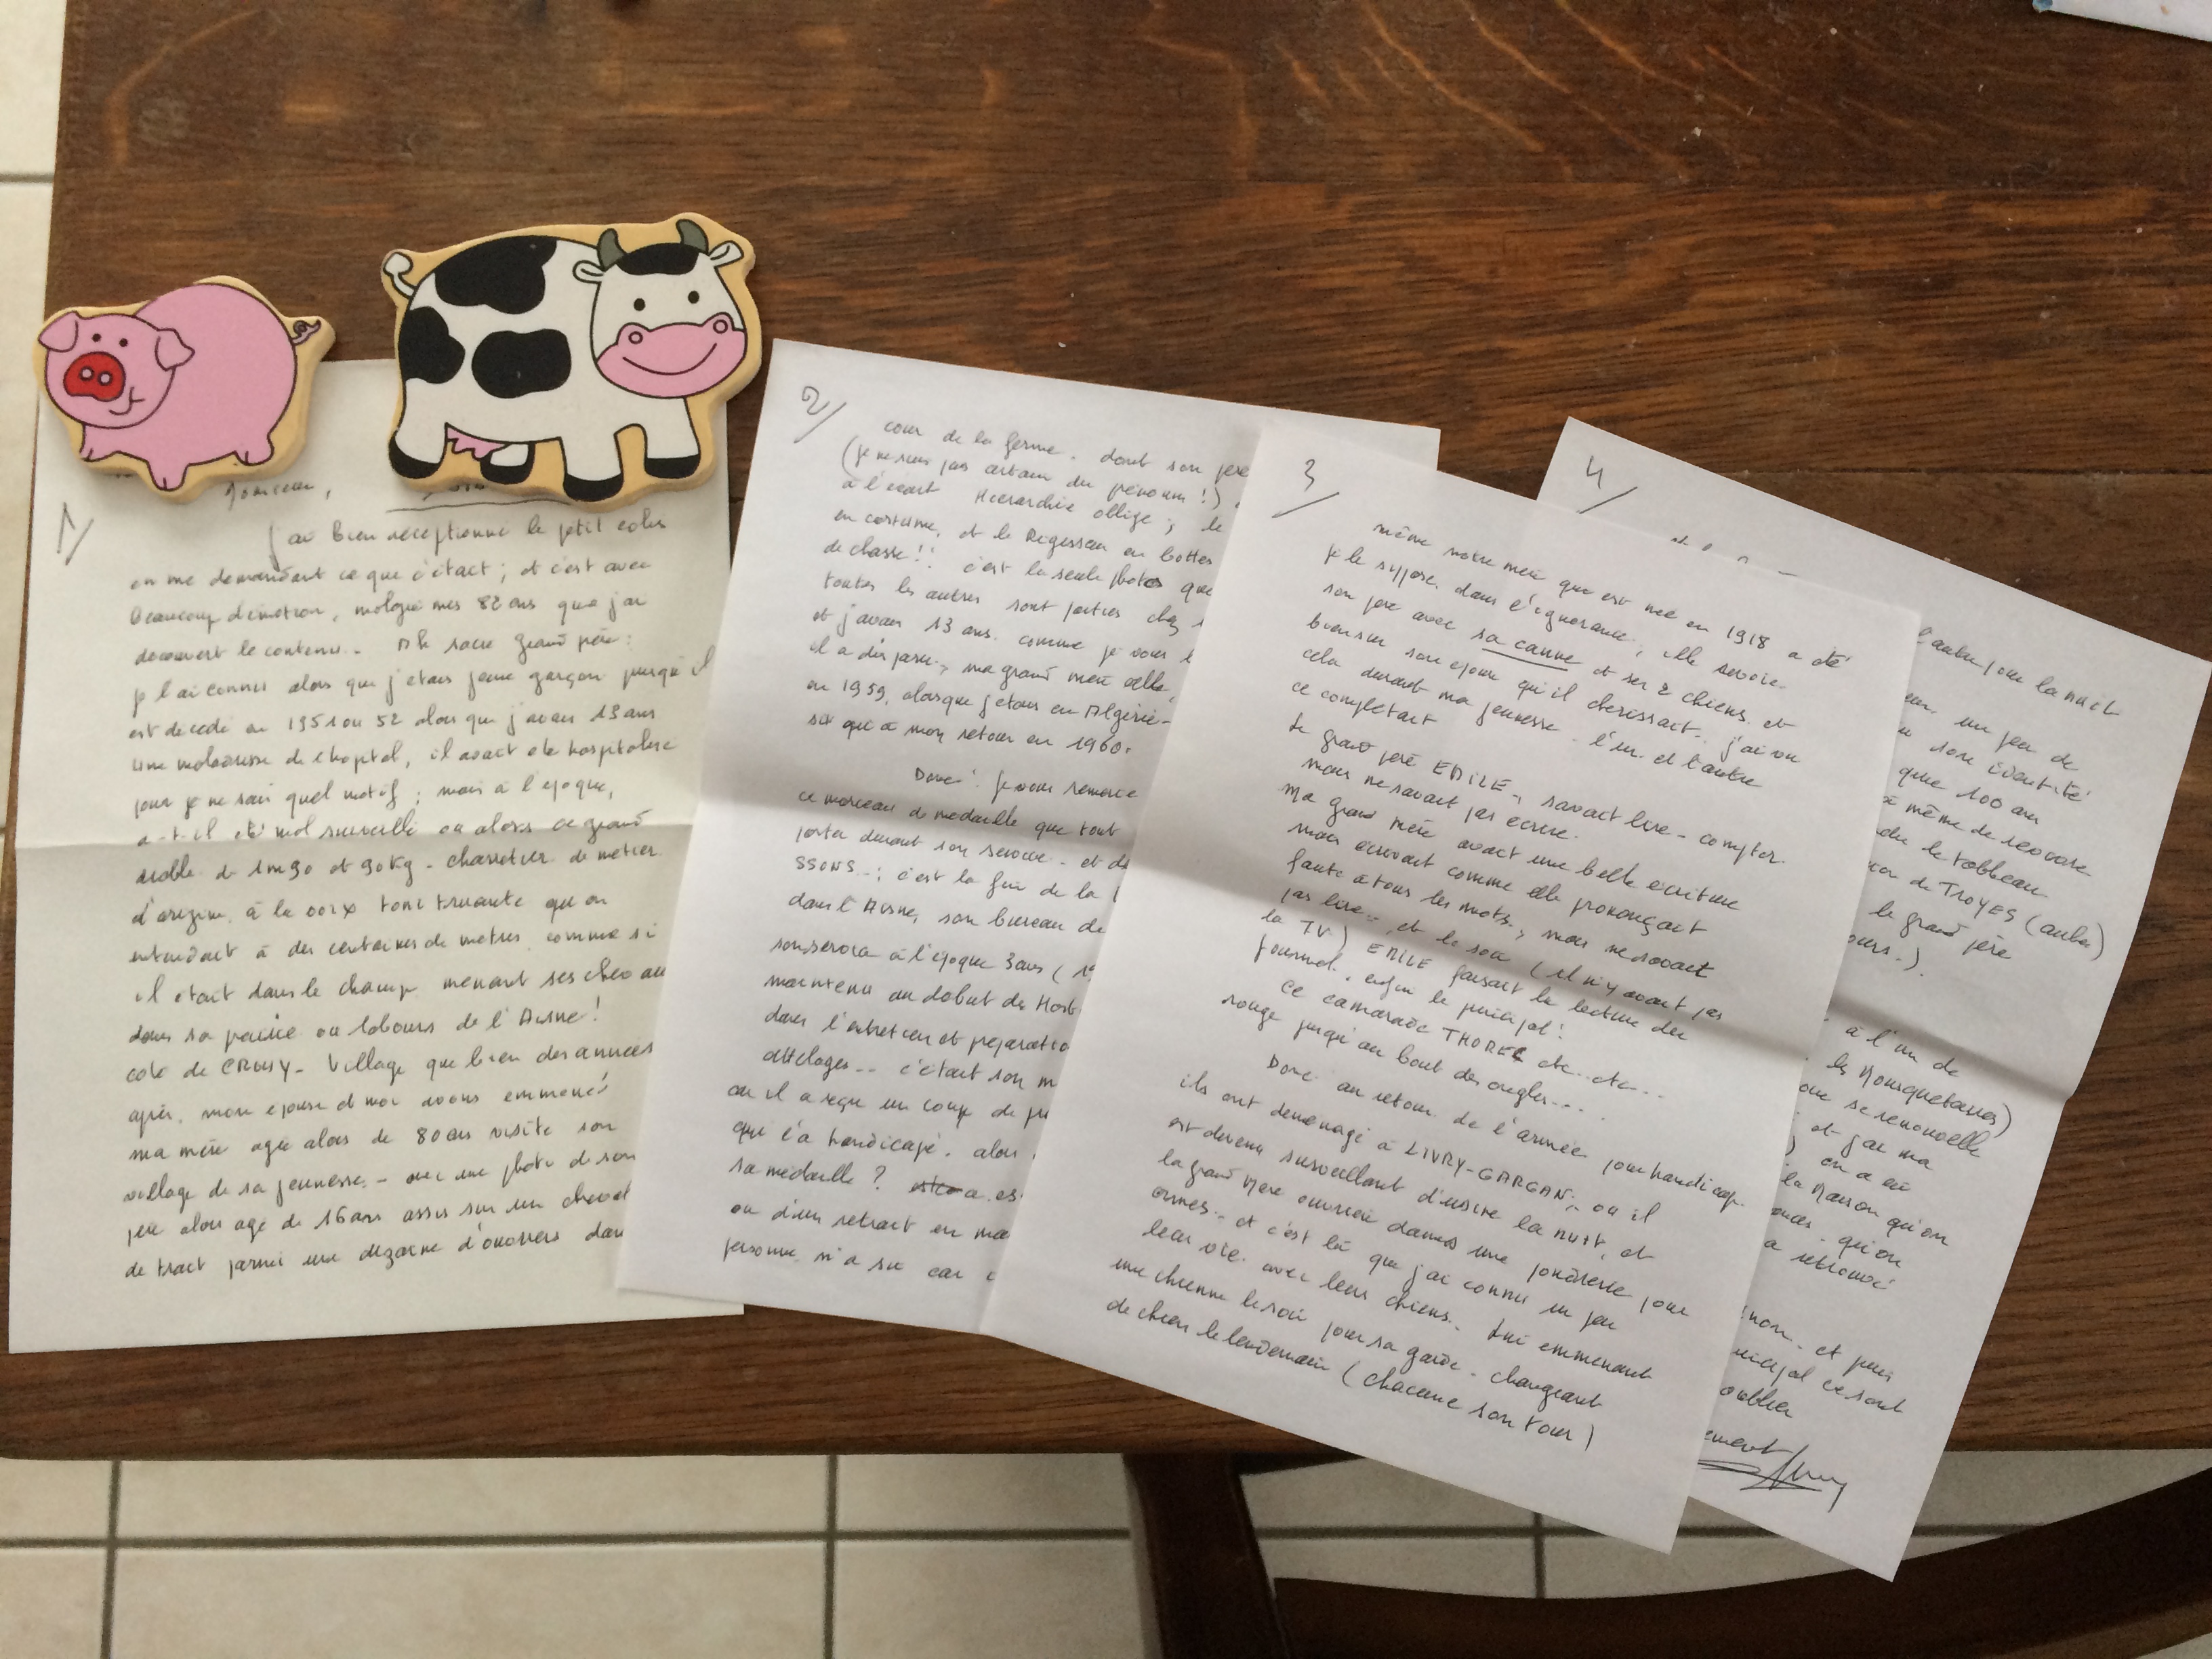 1/
Monsieur,
J'ai bien réceptionné le petit colis
en me demandant ce que c'était ; et c'est avec
Beaucoup d'émotion, malgré mes 82 ans que j'ai
découvert le contenu - Ah sacré Grand père :
je l'ai connu alors que j'étais jeune garçon puisqu'il
est décédé en 1951 ou 52 alors que j'avais 13 ans
une maladresse de l'hopital, il avait été hospitalisé
pour je ne sais quel motif ; mais à l'époque,
a-t-il été mal surveillé ou alors ce grand
diable de 1m90 et 90Kg - charretier de métier
d'origine, à la voix tonitruante qu'on
entendait à des centaines de mètres comme si
il était dans le champ menant ses chevau
dans sa prairie ou labours de l'Aisne !
coté de CROUY - Village que bien des années
après, mon épouse et moi avons emmené
ma mère agée alors de 80 ans visité son
village de sa jeunesse - avec une photo de son
père alors agé de 16 ans assis sur un cheval
de trait parmi une dizaine d'ouvriers dans
2/
cour de la ferme. dont son père
(je ne suis pas certain du prénom !)
à l'écart Hierarchie oblige ; le
en costume, et le Régisseur en bottes
de chasse !! c'est la seule photos que
toutes les autres sont parties chez
et j'avais 13 ans. comme je vous
il a disparu, ma grand mère elle,
en 1959, alors que j'étais en Algérie -
su qu'à mon retour en 1960.
Donc ! Je vous remercie
ce morceau de médaille que tout
porter durant son service - et de
SSONS - ; c'est la fin de la
dans l'Aisne, son bureau de
son service à l'époque 3 ans (19
maintenu au début des Host
dans l'entretien et préparatio
attelages -- c'était son m
ou il a reçu un coup de
qui l'a handicapé. alors
sa médaille ? a. es
ou d'un retrait en ma
personne n'a su car
3/
même notre mère que est née en 1918 a été
je le suppose dans l'ignorance ; elle
son père avec sa canne et ses 2 chiens. et
bien sur son épouse qu'il cherissait. j'ai vu
cela durant ma jeunesse. l'un et l'autre
ce complétait
Le grand père EMILE -, savait lire - compter
mais ne savait pas écrire.
Ma grand mère avait une belle écriture
mais écrivait comme elle prononçait
faute à tous les mots, mais ne savait
pas lire -, et le soir (il n'y avait pas
la TV) EMILE faisait la lecture du
journal. enfin le principal !
ce camarade THOREZ etc.. etc -..
rouge jusqu'au bout des ongles....
Donc au retour de l'armée pour handicap.
ils ont déménagé à LIVRY-GARGAN ; ou il
est devenu surveillant d'usine la nuit, et
la grand Mère ouvrière dans une poudrerie pour
armes - et c'est là que j'ai connu un peu
leur vie avec leurs chiens - Lui emmenant
une chienne le soir pour sa garde - changeant
de chien le lendemain (chacune son tour)
4/
l'autre pour la nuit
un peu de
son identité
que 100 ans
même de revivre
du le tableau
de TROYES (aube)
le grand père
ours -).
à l'un de
les Mousquetaires)
se renouvelle
et j'ai ma
) on a eu
la Maison qu'on
qu'on
a retrouvé
non - et puis
ncipal ce sont
oublier
ement